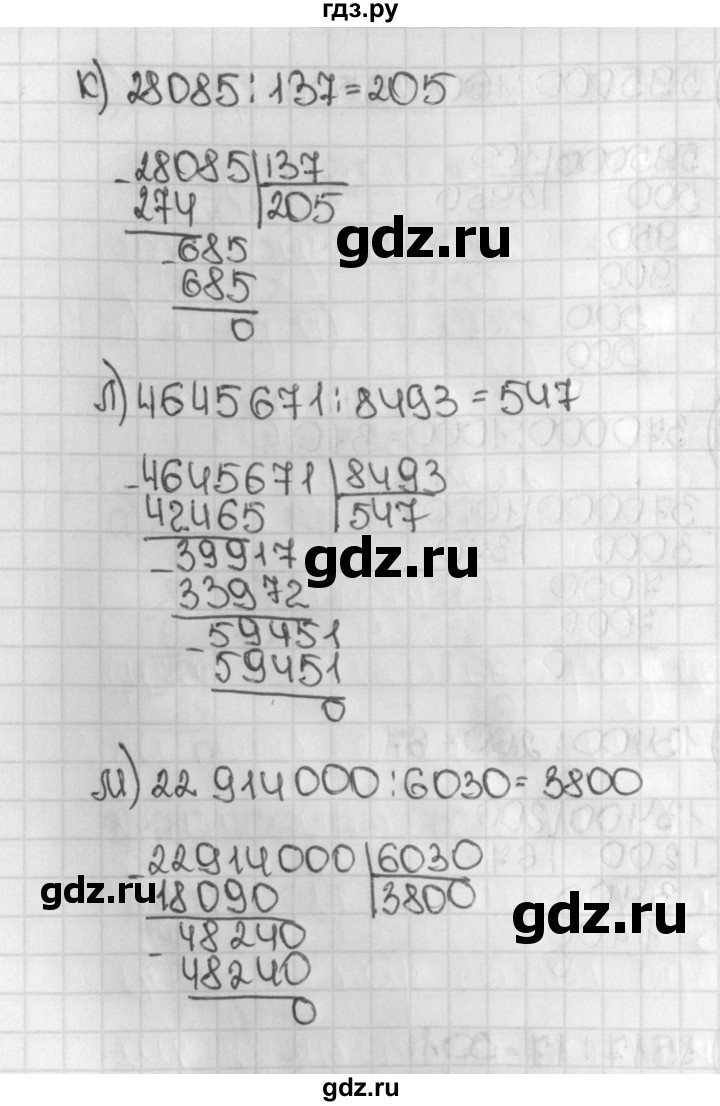 гдз.ру
к) 28085:137=205
-28085|137
274 |205
gdz.ru
-685
685
0
л) 4645671:8493=547
-4645671|8493
42465 |547
-39917
gdz.ru
33972
-59451
59451
0
м) 22 914 000:6030=3800
-22914000|6030
gdz.ru
18090 |3800
gdz.ru
-48240
48240
0
gdz.ru